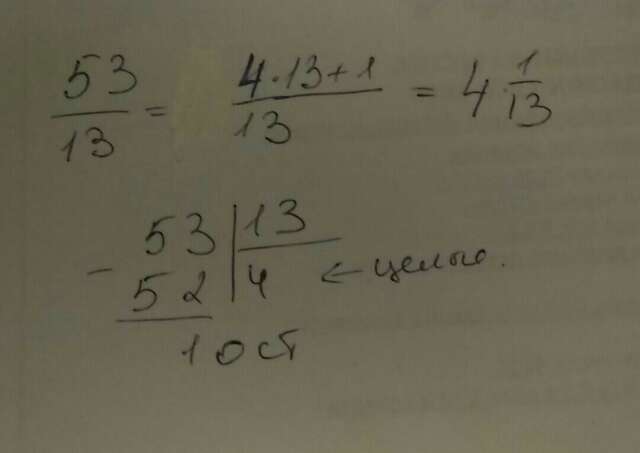 53/13 = (4·13+1)/13 = 4 1/13
- 53 | 13
52 | 4 ← целые.
1 ост